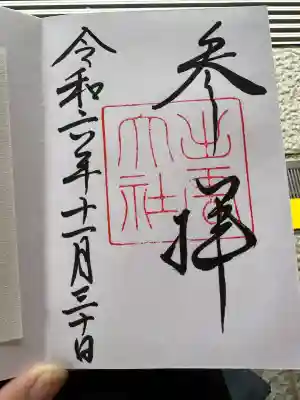 参拝
出雲大社
令和六年十一月三十日